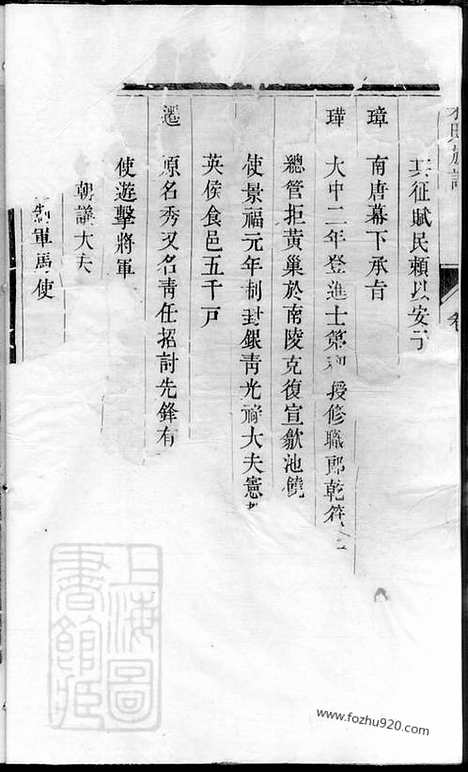 其征賦民賴以安子
璋 南唐幕下承旨
璍 大中二年登進士第 授修職郎乾符
總管拒黄巢於南陵克復宣歙池饒
使景福元年制封銀青光祿大夫憲
英侯食邑五千戸
遷 原名秀又名靑任招討先鋒有
使遊擊將軍
朝議大夫
制軍馬使
上海圖書館藏
www.fozhu920.com